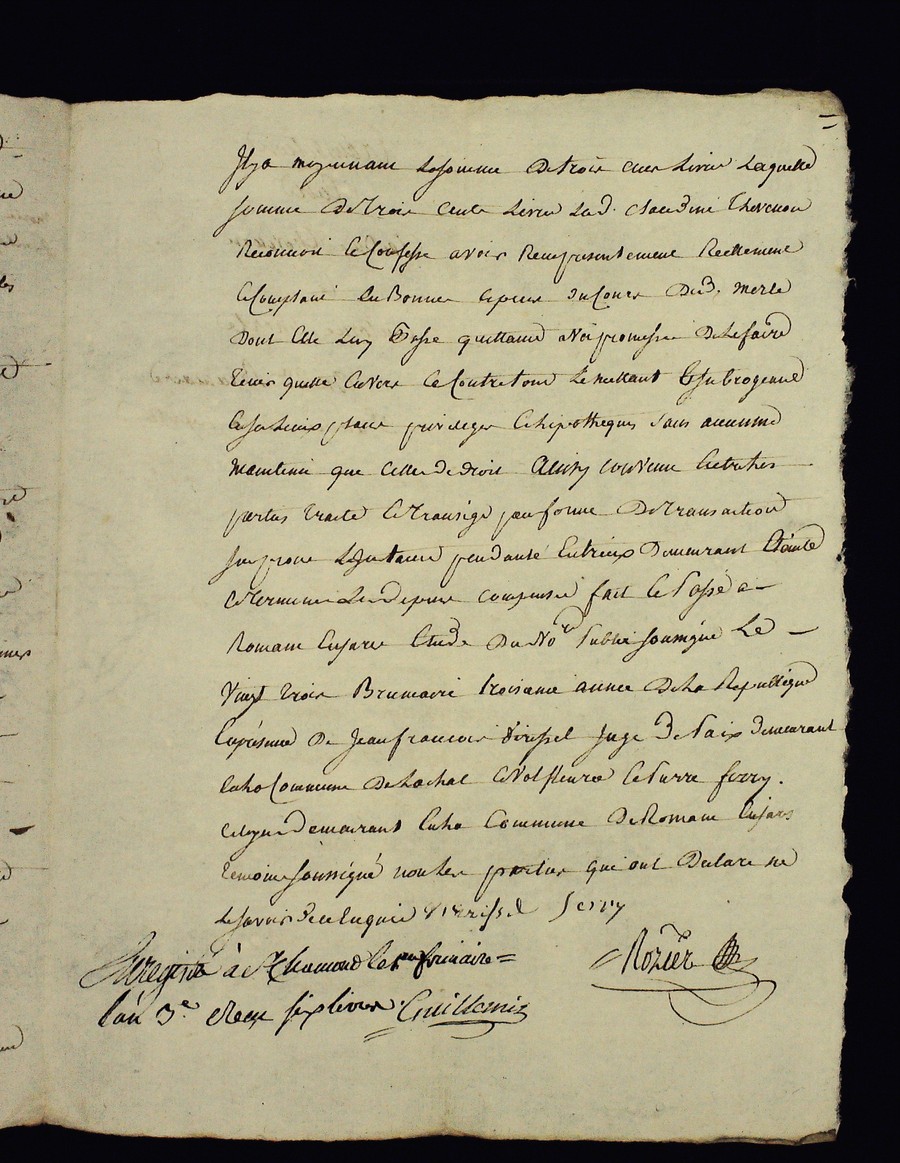 moyennant la somme de trois cent livres Laquelle
somme De Trois Cents Livres Lad. Claudine Thevenon
Reconnoit et Confesse avoir Reellement
et Comptant en Bonnes especes du Cours Dud. Merle
Dont elle Luy passe quittance avec promesse De Le faire
tenir quitte envers et Contre tous Le mettant et subrogeant
en son Lieux place privileges et hipotheques sans aucune
maintenue que celle de droit Ainsy convenu entre les
parties traité et transigé par forme De Transaction
sur procé instance pendante entr'eux Demeurant Eteinte
et Terminée Les depens compensés fait et Passé a
Romain en jarês Etude Du No.re Public soussigné Le
Vingt trois Brumaire troisieme année De La Republique
en présence De Jean francois Virissel Juge De Paix demeurant
en La Commune De La chal et Valfleurie et Pierre ferry.
citoyen demeurant en La Commune De Romain en jarês
temoins soussigné non Les parties qui ont Declaré ne
Le savoir de ce enquis Virissel ferry
Enregistré à St Chamond le frimaire
l'an 3.e Reçu six livres. Guillemin
Rozier